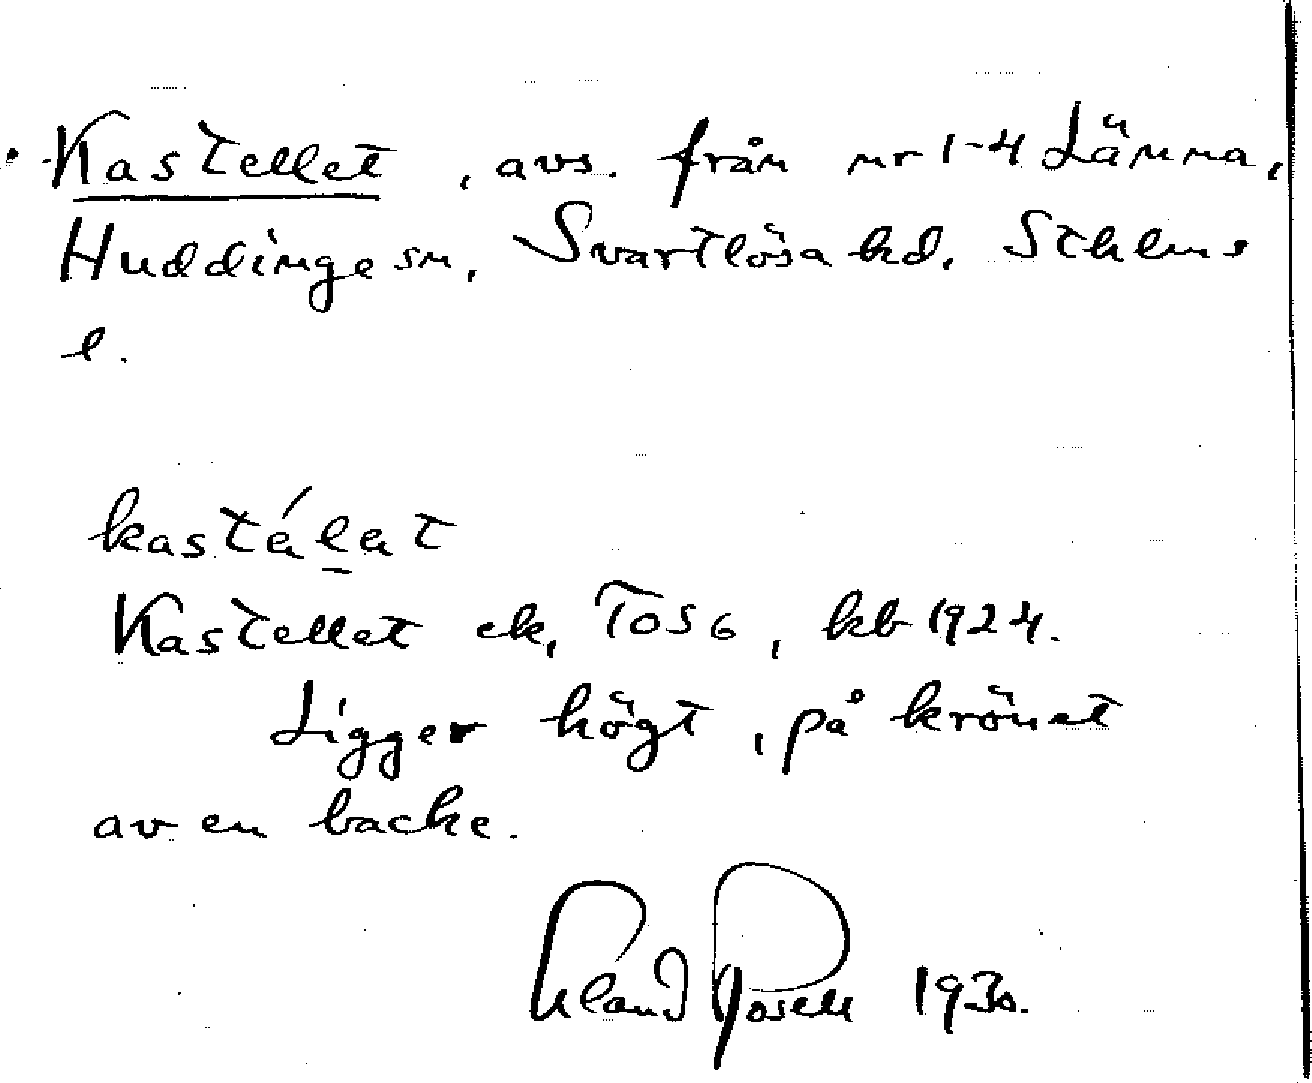 Kastellet, avs. från nr 1-4 Länna,
Huddinge sn, Svartlösa hd. Sthlms
l.
kastälat
Kastellet ek, Tos6, kb 1924.
Ligger högt, på krönet
av en backe.
1930.